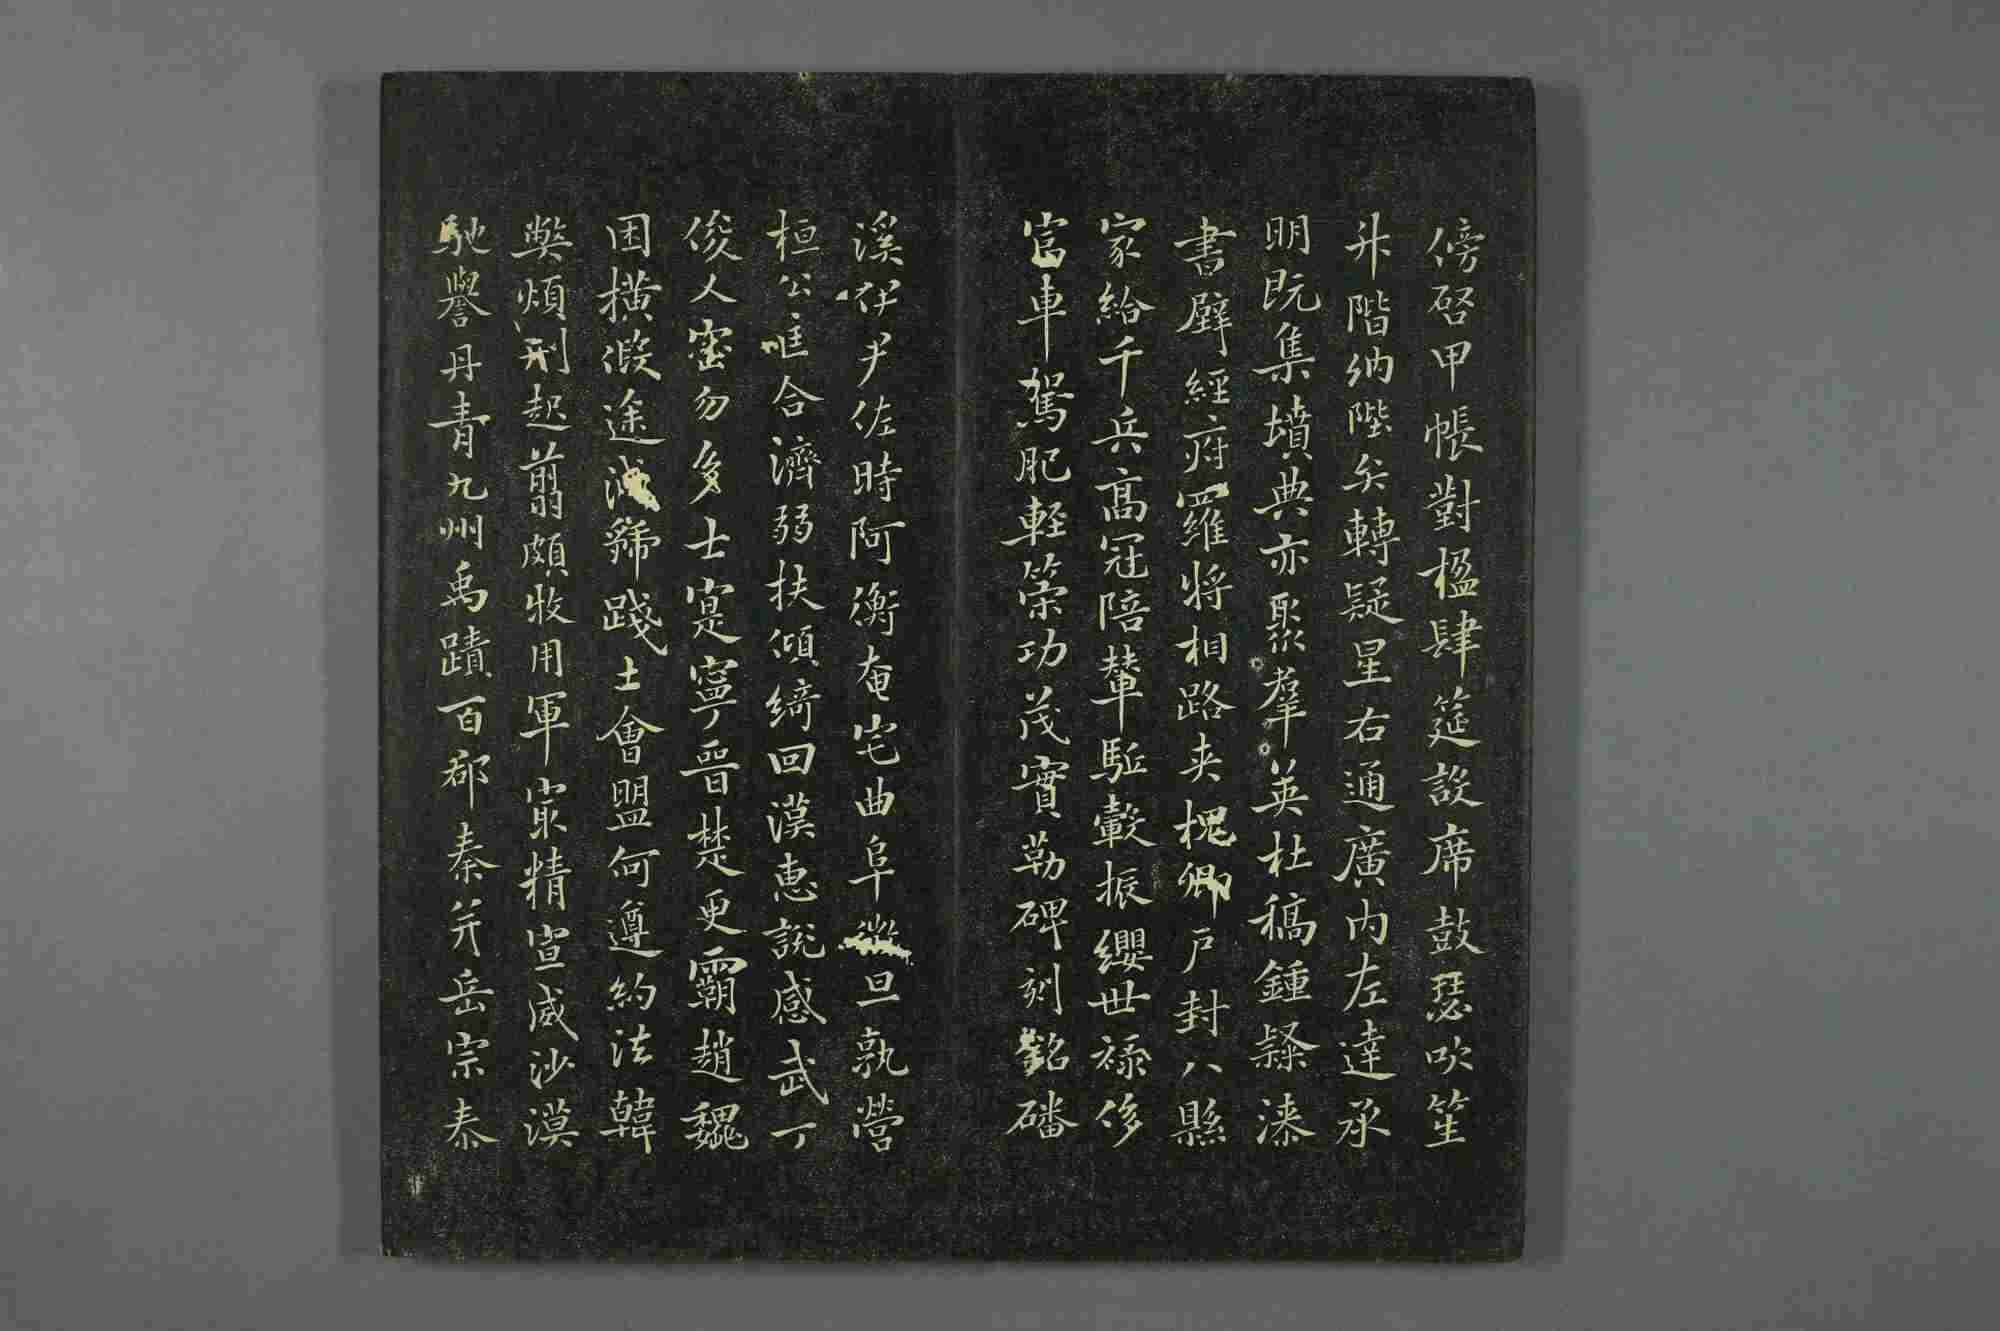 傍啓甲帳對楹肆筵設席鼓瑟吹笙
升階納陛弁轉疑星右通廣內左達承
明既集墳典亦聚羣英杜稿鍾隸漆
書壁經府羅將相路夹槐卿戶封八縣
家給千兵高冠陪輦駈轂振纓世祿侈
富車駕肥軽策功茂實勒碑刻銘磻
溪伊尹佐時阿衡奄宅曲阜微旦孰營
桓公匡合濟弱扶傾綺回漢惠説感武丁
俊人密勿多士寔寧晉楚更霸趙魏
困橫假途滅虢踐土會盟何遵約法韓
弊煩刑起翦頗牧用軍㝡精宣威沙漠
馳譽丹青九州禹蹟百郡秦并岳宗泰